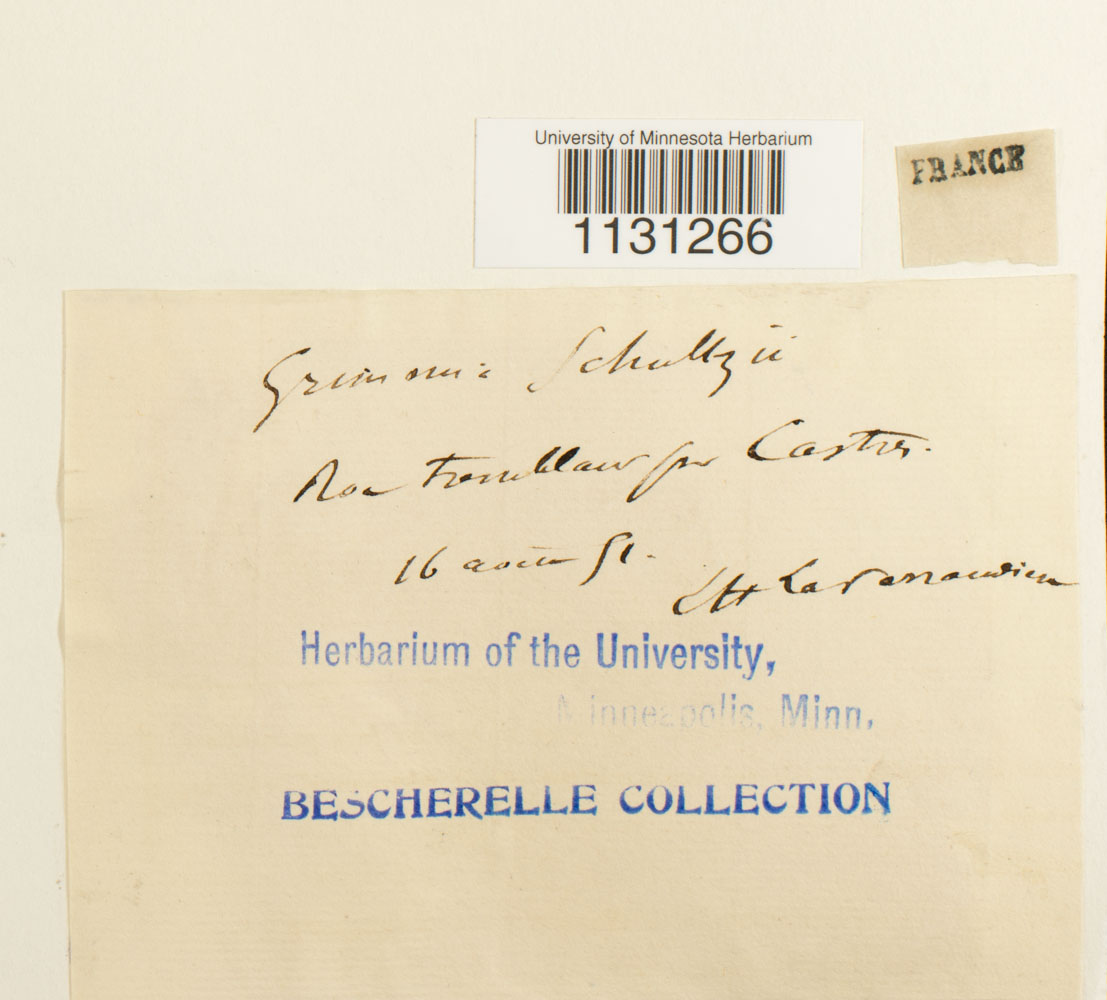 University of Minnesota Herbarium
1131266
FRANCE
Grimmia Schultzii
Roc Tremblant pr Castres.
16 août 51.
Herbarium of the University,
Minneapolis, Minn.
BESCHERELLE COLLECTION